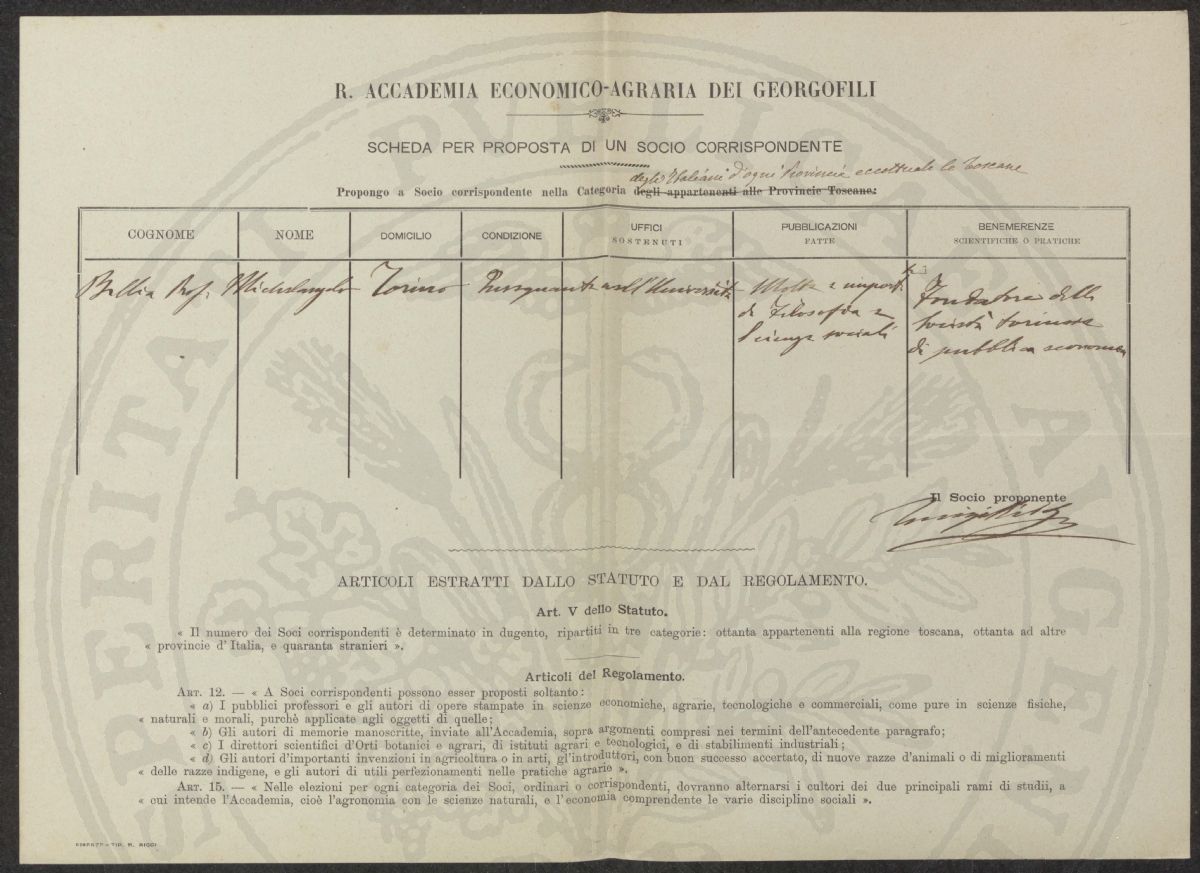 R. ACCADEMIA ECONOMICO-AGRARIA DEI GEORGOFILI
SCHEDA PER PROPOSTA DI UN SOCIO CORRISPONDENTE
degli Italiani d'ogni Provincia eccettuate le Toscane
Propongo a Socio corrispondente nella Categoria degli appartenenti alle Provincie Toscane:
COGNOME NOME DOMICILIO CONDIZIONE UFFICI SOSTENUTI PUBBLICAZIONI FATTE BENEMERENZE SCIENTIFICHE O PRATICHE
Billia Prof. Michelangelo Torino Insegnante nell'Università Molte e import.
di Filosofia e
Scienze sociali
Fondatore della
Società torinese
di pubblica economia
Il Socio proponente
ARTICOLI ESTRATTI DALLO STATUTO E DAL REGOLAMENTO.
Art. V dello Statuto.
« Il numero dei Soci corrispondenti è determinato in dugento, ripartiti in tre categorie: ottanta appartenenti alla regione toscana, ottanta ad altre
« provincie d'Italia, e quaranta stranieri ».
Articoli del Regolamento.
ART. 12. — « A Soci corrispondenti possono esser proposti soltanto:
« a) I pubblici professori e gli autori di opere stampate in scienze economiche, agrarie, tecnologiche e commerciali, come pure in scienze fisiche,
« naturali e morali, purchè applicate agli oggetti di quelle;
« b) Gli autori di memorie manoscritte, inviate all'Accademia, sopra argomenti compresi nei termini dell'antecedente paragrafo;
« c) I direttori scientifici d'Orti botanici e agrari, di istituti agrari e tecnologici, e di stabilimenti industriali;
« d) Gli autori d'importanti invenzioni in agricoltura o in arti, gl'introduttori, con buon successo accertato, di nuove razze d'animali o di miglioramenti
« delle razze indigene, e gli autori di utili perfezionamenti nelle pratiche agrarie ».
ART. 15. — « Nelle elezioni per ogni categoria dei Soci, ordinari o corrispondenti, dovranno alternarsi i cultori dei due principali rami di studii, a
« cui intende l'Accademia, cioè l'agronomia con le scienze naturali, e l'economia comprendente le varie discipline sociali ».
FIRENZE - TIP. M. RICCI